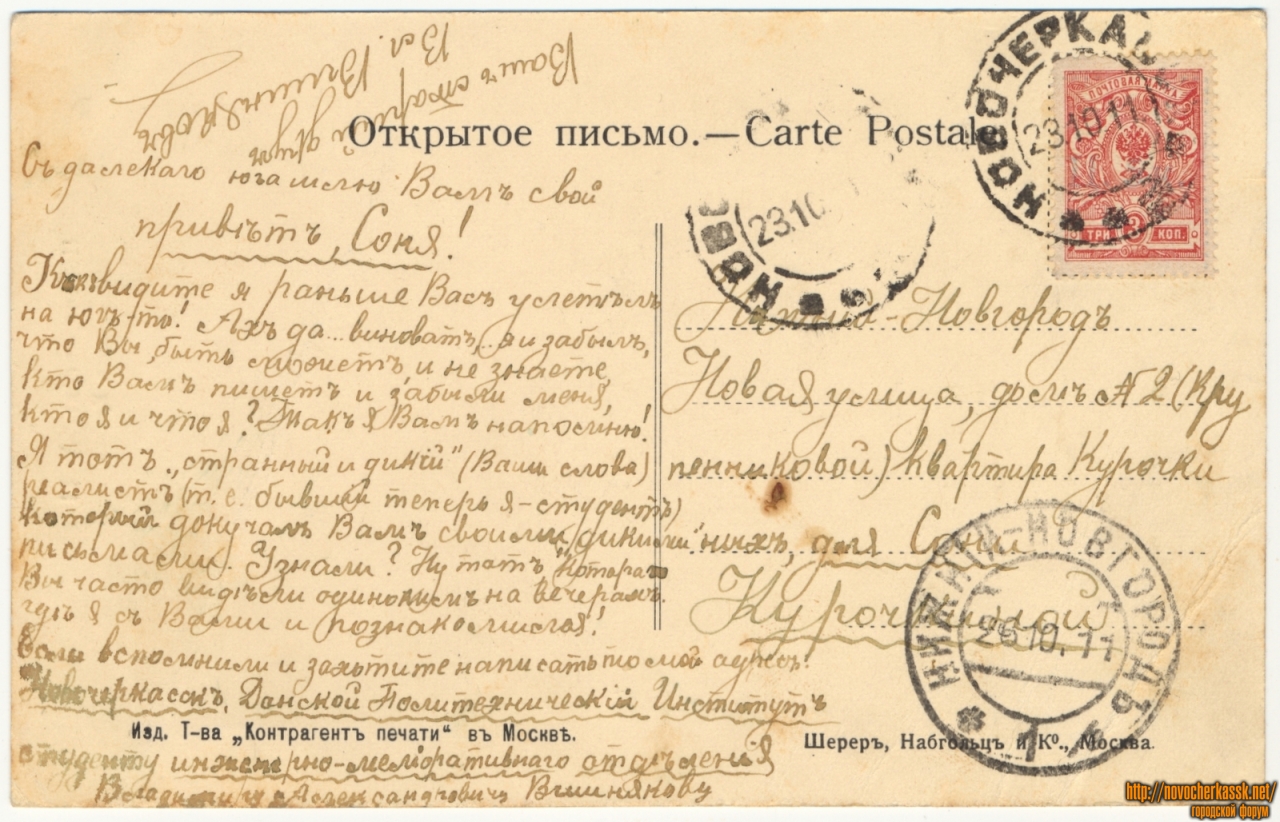 Вашъ старый другъ
Вл. Вишняковъ
Открытое письмо.—Carte Postale
Съ далекаго юга шлю Вамъ свой
привѣтъ, Соня!
Какъ видите я раньше Васъ улетѣлъ
на югъ-то! Ахъ да... виноватъ, я и забылъ,
что Вы, быть можетъ, и не знаете,
кто Вамъ пишетъ и забыли меня,
кто я и что я? Такъ я Вамъ напомню!
Я тотъ „странный и дикій" (Ваши слова)
реалистъ (т. е. бывшій теперь я - студентъ)
который докучалъ Вамъ своими дикими
письмами. Узнали? Ну тотъ котораго
Вы часто видѣли одинокимъ на вечерахъ
гдѣ я съ Вами и познакомился!
Если вспомнили и захотите написать то мой адресъ:
Новочеркасскъ, Донской Политехническій Институтъ
студенту инженерно-меліоративнаго отдѣленія
Владимиру Александровичу Вишнякову
Изд. Т-ва „Контрагентъ печати" въ Москвѣ.
НОВОЧЕРКАС
23.10.11
ПОЧТОВАЯ МАРКА
3
ТРИ КОП.
НОВО
23.10
Нижній-Новгородъ
Новая улица, домъ № 2 (Кру
пенниковой) квартира Курочки
ныхъ, для Сони
Курочкиной
НИЖНІЙ-НОВГОРОДЪ
26.10.11
1
Шереръ, Набгольцъ и Ко., Москва.
http://novocherkassk.net/
городской форум